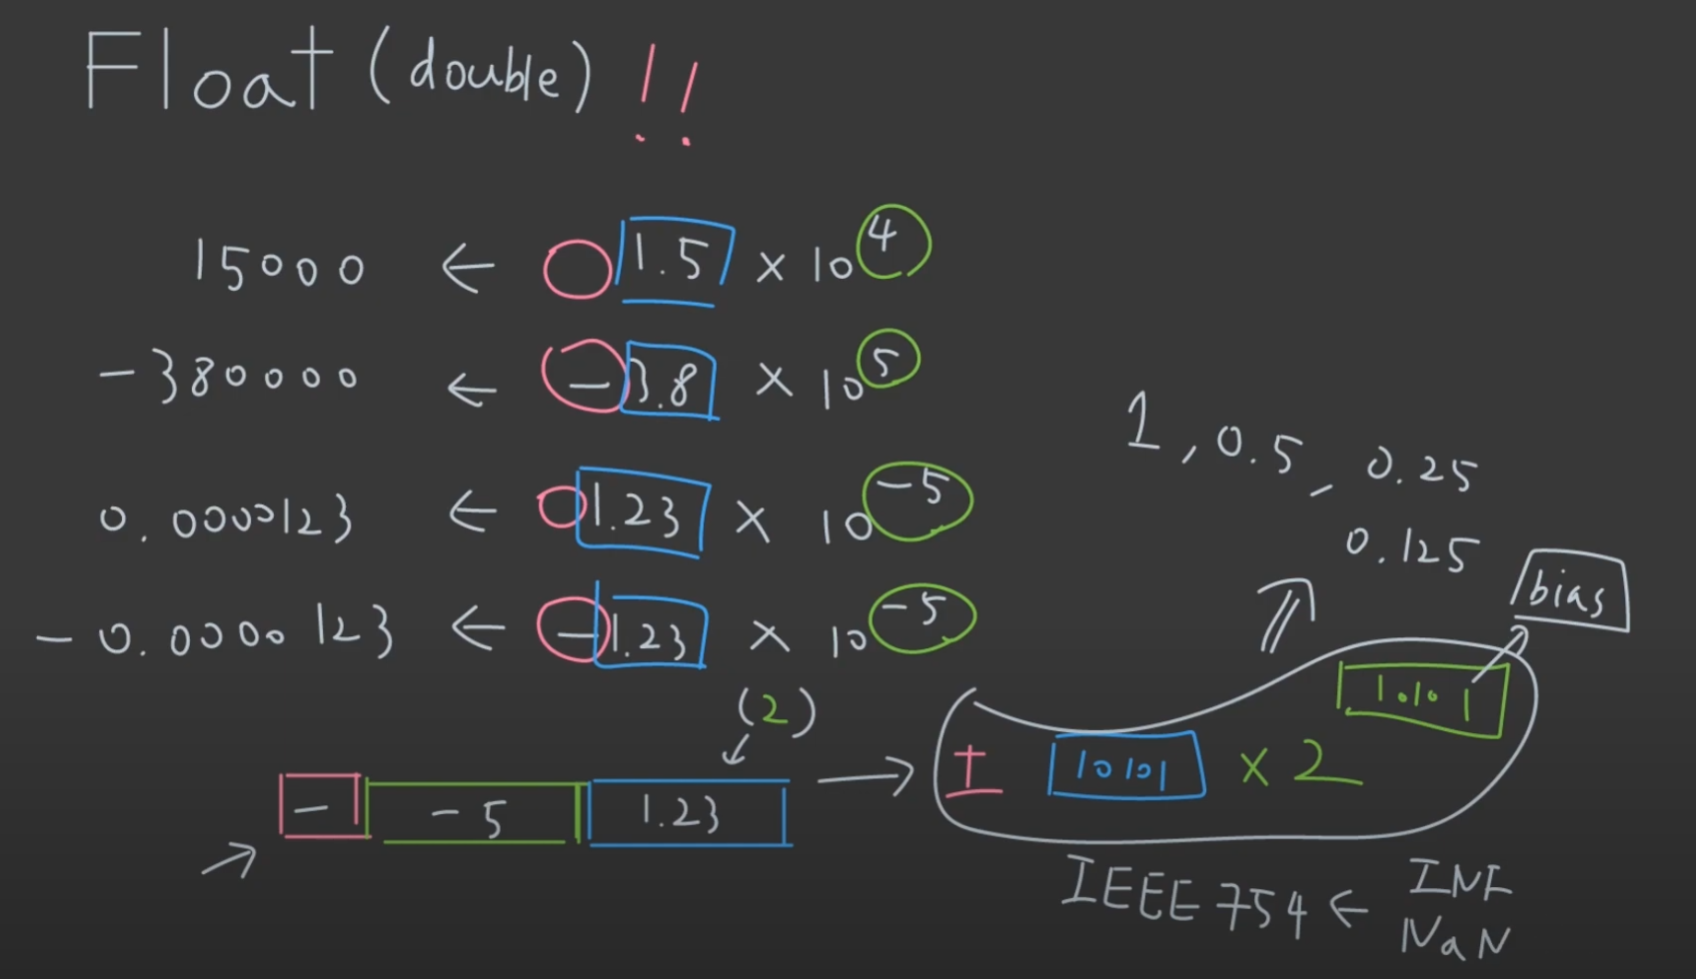 Float (double) !!
15000 ← 1.5 × 10^4
-380000 ← -3.8 × 10^5
0.0000123 ← 1.23 × 10^-5
-0.0000123 ← -1.23 × 10^-5
1, 0.5, 0.25
0.125
bias
(2)
- -5 1.23 → ± 10101 × 2^10101
IEEE754 ← INF
NaN